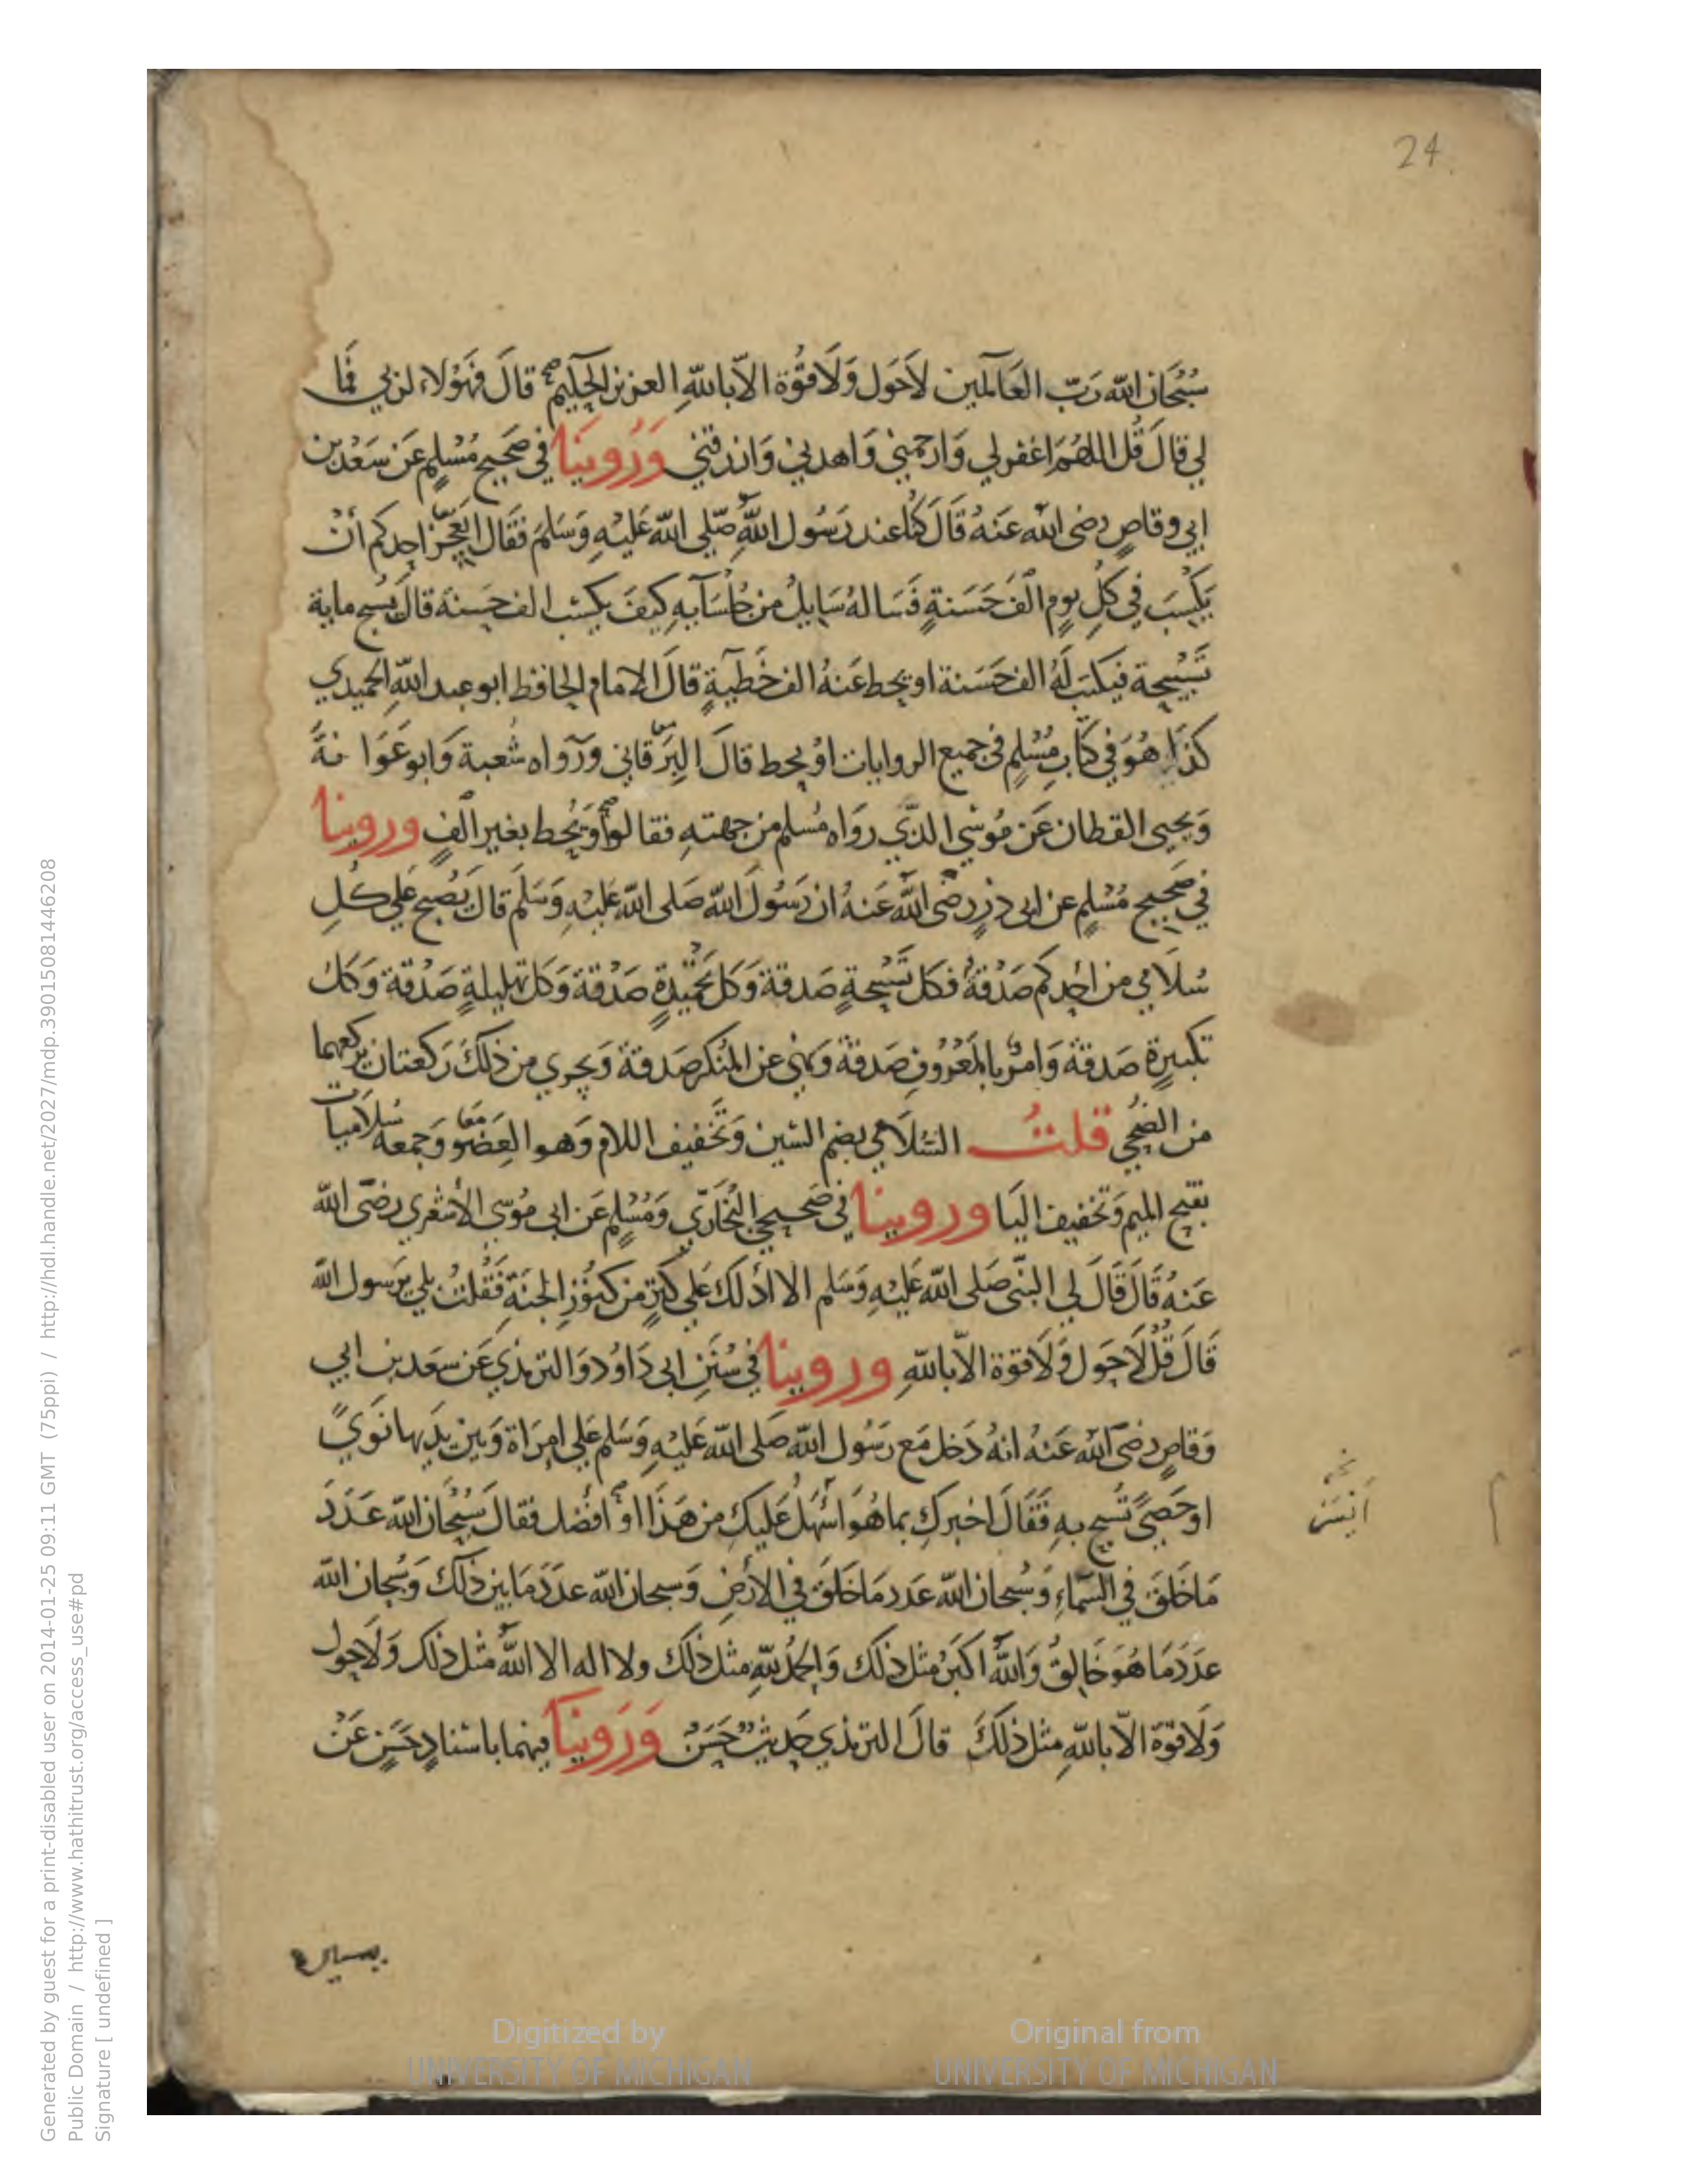 24
سُبْحَانَ اللّه رَبّ العَالَمين لاَحَول وَلَا قُوَّة الاّ باللّهِ العزيز الحَكيم صح قالَ فَهَؤلاء لربي فَما
لي قالَ قُل اللهُمَّ اغفر لي وَارحمني وَاهدني وَارزقني وَرُوينَا في صَحيح مُسْلِم عَن سَعْد بن
ابي وقاصٍ رضى الله عَنهُ قَالَ كُنّا عند رَسُول اللهِ صّلى اللّه عَليْهِ وَسَلمَ فقَال ايَعجز احدكم أنْ
يَكْسِبَ في كُلِ يومٍ ألفَ حَسَنةٍ فَسَالهُ سَايلٌ من جُلسَآيهِ كيفَ يكسب الف حَسنة قالَ يُسبح ماية
تَسْبيحة فيكتب لَهُ الف حَسَنة او يحط عَنهُ الف خَطيّةٍ قالَ الامام الحافظ ابو عبد اللّهِ الحميدي
كذَا هُوَ في كتابِ مُسْلِمٍ في جميع الروايات اوْ يحط قالَ البَرقاني وَرواه شُعبة وَابو عَوَا نةَ
وَيحيى القطان عَن مُوسي الذّي روَاه مُسلم من جهتهِ فقالوا وَيُحط بغير ألفٍ وروينا
في صَحيح مُسْلِمٍ عن ابى ذرٍ رضى اللهُ عَنهُ ان رَسُولَ اللّه صَلى اللّه عَليْهِ وَسَلَّم قالَ يُصبح عَلي كُلِ
سُلَامي من احدِكم صَدْقةٌ فكل تَسْبيحةٍ صَدقة وَكل تحْميدةٍ صَدْقة وَكل تهليلةٍ صَدْقة وَكل
تكبيرةٍ صَدقة وَامرٌ بالمَعْرُوفِ صَدقة وَنهي عن المُنكر صَدقة وَيجزي من ذلكَ رَكعتان يركعهما
من الضُحي قلتُ السُّلاَمي بضم السّين وَتَخفيف اللام وَهوَ العَضو معا وَجمعه سُلاَميات
بفتح الميم وَتخفيف اليَا وروينا في صَحيحي البُخَارّي وَمُسْلمٍ عَن ابى مُوسَى الأشعَري رضىَ اللّه
عَنهُ قَالَ قَالَ لي النبّى صَلى اللّه عَليْهِ وَسَلم الا ادُلكَ عَلي كنزٍ من كنوُزِ الجنَةِ فَقُلتُ بلي يَرسول اللّه
قَالَ قُل لَاحَول وَلَا قوة الاّ باللّهِ وروينا في سُنَنِ ابى دَاوُد وَالترمذي عَن سعَد بن ابي
وَقاصٍ رضىَ اللهُ عَنهُ انهُ دَخل مَع رسُول اللّه صَلى اللّه عَليْهِ وَسَلم عَلي امرَاة وَبين يدَيها نَوىً
او حَصىً تُسبح بهِ فَقَالَ اخبركِ بما هُوَ اسْهَلُ عَليكِ من هَذَا اوْ افضل فقالَ سُبْحَانَ اللّه عَدَدَ
مَا خلقَ في السَّماءِ وَسُبحانَ اللّه عَدد مَا خلقَ في الأرْضِ وَسبحان اللّه عددَ مَا بَين ذلكَ وَسُبحان اللّه
عدَدَ مَا هُوَ خَالِقٌ وَاللّهُ اكبَر مثل ذلكَ وَالحمْدُ للّهِ مثلَ ذلكَ ولا اله الا اللّهُ مثل ذلك وَلَاحول
وَلَا قوّة الاّ باللّهِ مثل ذلكَ قالَ الترمذي حَديثٌ حَسَنٌ وَرَوينَا فيهما باسْنادٍ حَسَنٍ عَنْ
Digitized by
UNIVERSITY OF MICHIGAN
Original from
UNIVERSITY OF MICHIGAN
Generated by guest for a print-disabled user on 2014-01-25 09:11 GMT (75ppi) / http://hdl.handle.net/2027/mdp.39015081446208
Public Domain / http://www.hathitrust.org/access_use#pd
Signature [ undefined ]